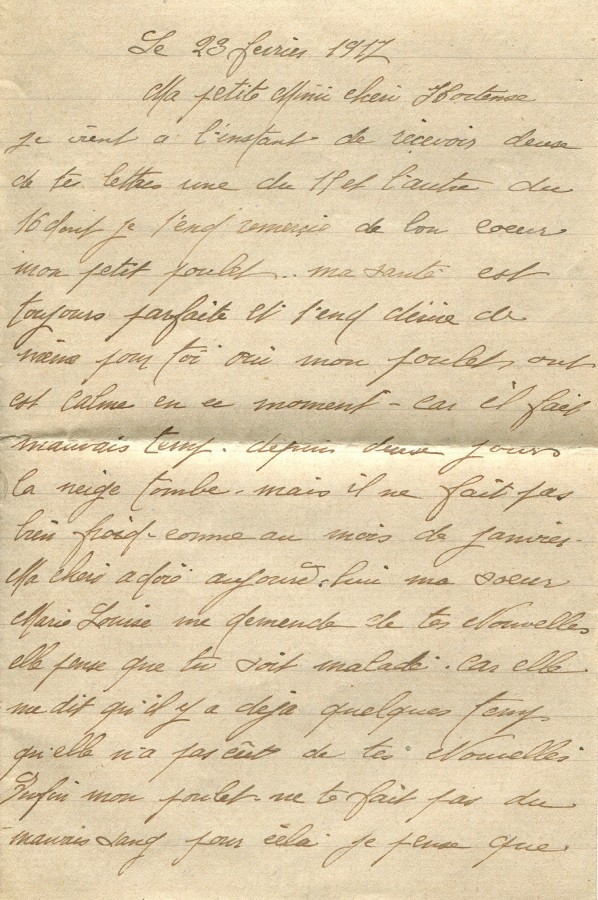 Le 23 fevrier 1917
Ma petite Mimi cheri Hortense
je vient a l'instant de recevoir deuse
de tes lettres une du 15 et l'autre du
16 dont je t'end remercie de bon coeur
mon petit poulet.. ma santé est
toujours parfaite et t'end désire de
même pour toi oui mon poulet, ont
est calme en ce moment - car il fait
mauvais temp. depuis deuse jours
la neige tombe - mais il ne fait pas
bien froid - comme au mois de janvier -
Ma cheri adoré aujourd'hui ma soeur
Marie Louise me demende de tes Nouvelles
elle pense que tu soit malade. car elle
me dit qu'il y a deja quelques temp
qu'elle n'a pas de tes Nouvelles
Enfin mon poulet - ne te fait pas du
mauvais sang pour céla je pense que